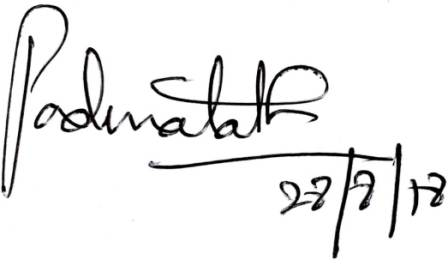 Padmalatha
28/8/18